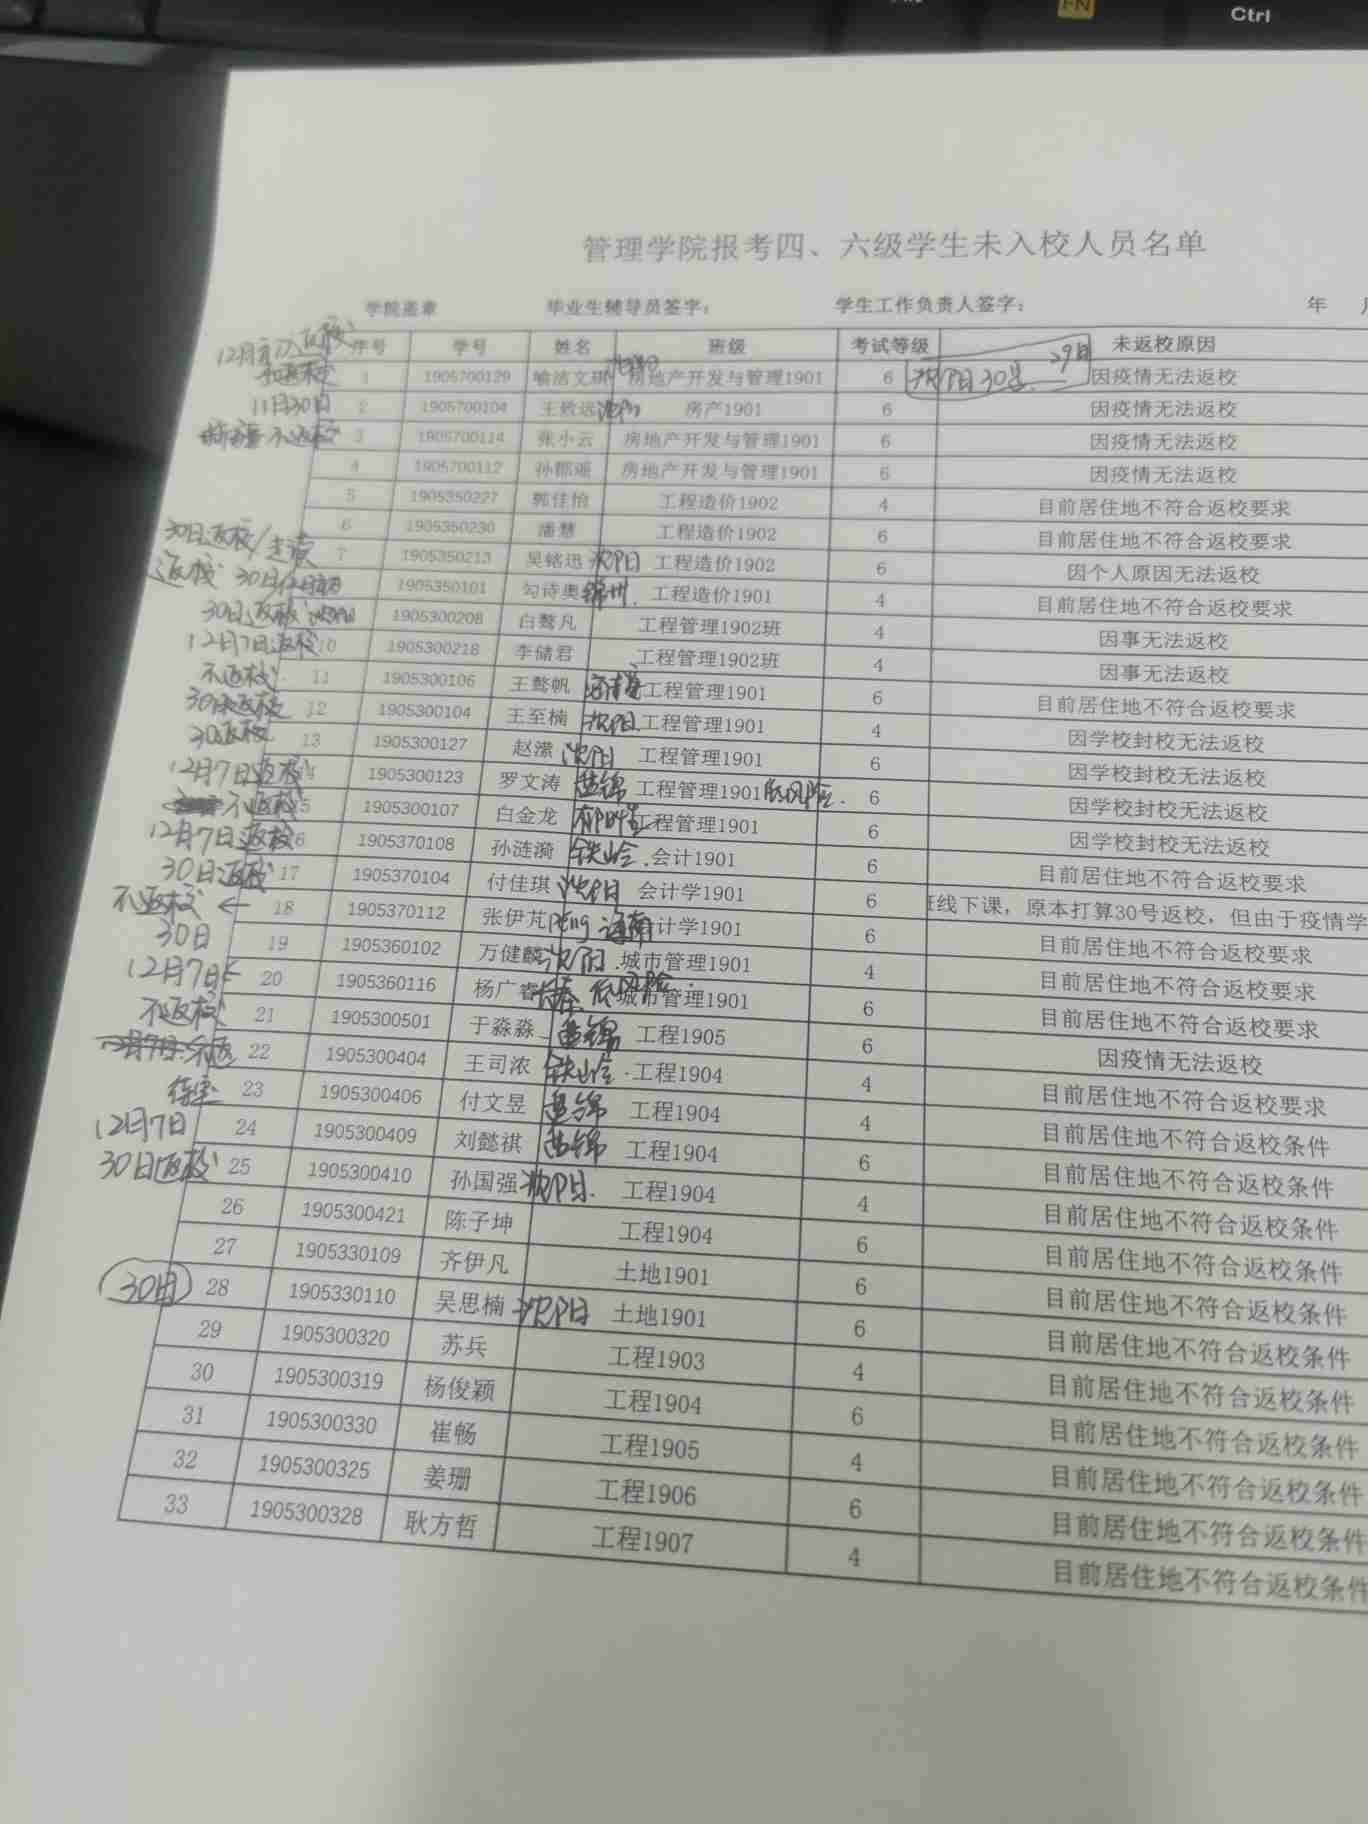 FN
Ctrl
管理学院报考四、六级学生未入校人员名单
学院盖章 毕业生辅导员签字： 学生工作负责人签字： 年
序号 学号 姓名 班级 考试等级 未返校原因
1 1905700129 喻洁文琪 房地产开发与管理1901 6 沈阳30号 29日 因疫情无法返校
11月30日 2 1905700104 王致远 房产1901 6 因疫情无法返校
不返校 3 1905700114 张小云 房地产开发与管理1901 6 因疫情无法返校
4 1905700112 孙郡遥 房地产开发与管理1901 6 因疫情无法返校
5 1905350227 郭佳怡 工程造价1902 4 目前居住地不符合返校要求
6 1905350230 潘慧 工程造价1902 6 目前居住地不符合返校要求
30日返校/走读 7 1905350213 吴铭迅 沈阳 工程造价1902 6 因个人原因无法返校
返校 30日 1905350101 勾诗奥 锦州 工程造价1901 4 目前居住地不符合返校要求
30日返校 1905300208 白骜凡 工程管理1902班 4 因事无法返校
12月7日返校 10 1905300218 李储君 工程管理1902班 4 因事无法返校
不返校 11 1905300106 王骜帆 工程管理1901 6 目前居住地不符合返校要求
30日返校 12 1905300104 王至楠 沈阳 工程管理1901 4 因学校封校无法返校
30返校 13 1905300127 赵潆 沈阳 工程管理1901 6 因学校封校无法返校
12月7日返校 4 1905300123 罗文涛 盘锦 工程管理1901 低风险. 6 因学校封校无法返校
不返校 5 1905300107 白金龙 工程管理1901 6 因学校封校无法返校
12月7日返校 6 1905370108 孙涟漪 铁岭. 会计1901 6 目前居住地不符合返校要求
30日返校 17 1905370104 付佳琪 沈阳 会计学1901 6 线下课，原本打算30号返校，但由于疫情学
不返校 ← 18 1905370112 张伊芃 peng 海南 计学1901 6 目前居住地不符合返校要求
30日 19 1905360102 万健麟 沈阳. 城市管理1901 4 目前居住地不符合返校要求
12月7日 20 1905360116 杨广睿 长春 低风险. 城市管理1901 6 目前居住地不符合返校要求
不返校 21 1905300501 于淼淼 盘锦 工程1905 6 因疫情无法返校
12月7日 不返 22 1905300404 王司浓 铁岭. 工程1904 4 目前居住地不符合返校要求
待定 23 1905300406 付文昱 盘锦 工程1904 4 目前居住地不符合返校条件
12月7日 24 1905300409 刘懿祺 盘锦 工程1904 6 目前居住地不符合返校条件
30日返校 25 1905300410 孙国强 沈阳. 工程1904 4 目前居住地不符合返校条件
26 1905300421 陈子坤 工程1904 6 目前居住地不符合返校条件
27 1905330109 齐伊凡 土地1901 6 目前居住地不符合返校条件
30日 28 1905330110 吴思楠 沈阳 土地1901 6 目前居住地不符合返校条件
29 1905300320 苏兵 工程1903 4 目前居住地不符合返校条件
30 1905300319 杨俊颖 工程1904 6 目前居住地不符合返校条件
31 1905300330 崔畅 工程1905 4 目前居住地不符合返校条件
32 1905300325 姜珊 工程1906 6 目前居住地不符合返校条件
33 1905300328 耿方哲 工程1907 4 目前居住地不符合返校条件